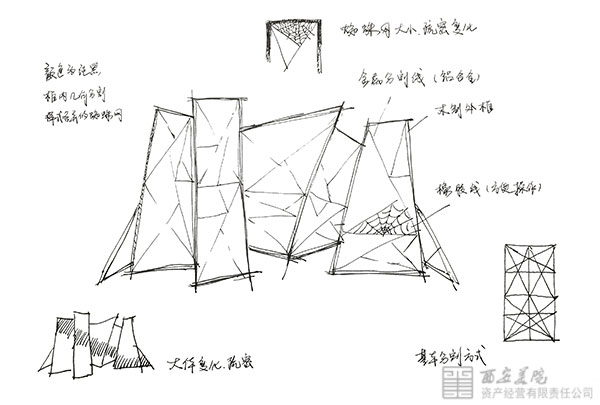 蜘蛛网大小.疏密变化
颜色为纯黑
框内几何分割
金属分割线(铝合金)
木制外框
橡胶线(方便操作)
大体变化.疏密
基本分割方式
西安美院
资产经营有限责任公司